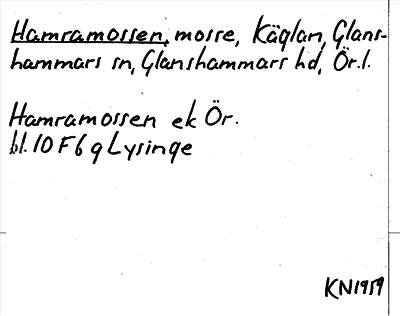 Hamramossen, mosse, Käglan, Glans-
hammars sn, Glanshammars hd, Ör. l.
Hamramossen ek Ör.
bl. 10 F 6 g Lysinge
KN 1959